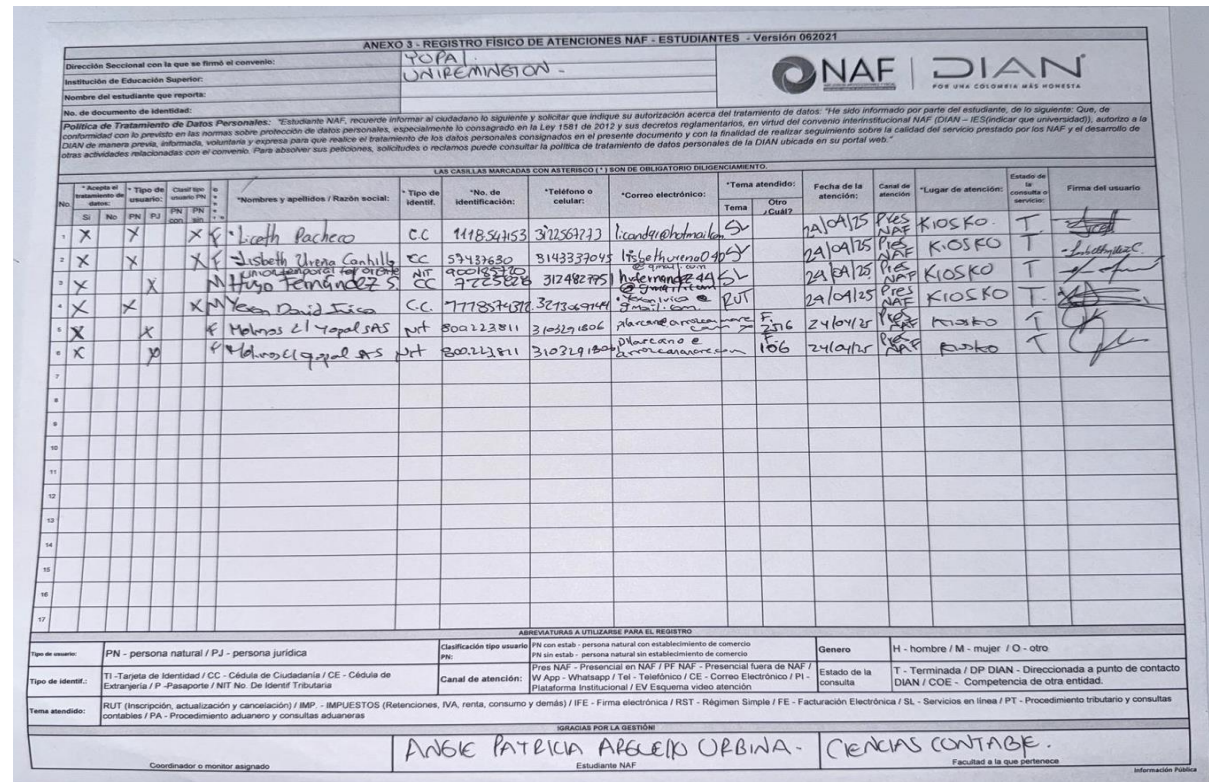 ANEXO 3 - REGISTRO FÍSICO DE ATENCIONES NAF - ESTUDIANTES - Versión 062021
Dirección Seccional con la que se firmó el convenio: YOPAL.
Institución de Educación Superior: UNIREMINGTON -
Nombre del estudiante que reporta:
No. de documento de identidad:
NAF DIAN
POR UNA COLOMBIA MÁS HONESTA
Política de Tratamiento de Datos Personales: "Estudiante NAF, recuerde informar al ciudadano lo siguiente y solicitar que indique su autorización acerca del tratamiento de datos: "He sido informado por parte del estudiante, de lo siguiente: Que, de
conformidad con lo previsto en las normas sobre protección de datos personales, especialmente lo consagrado en la Ley 1581 de 2012 y sus decretos reglamentarios, en virtud del convenio interinstitucional NAF (DIAN – IES(indicar que universidad)), autorizo a la
DIAN de manera previa, informada, voluntaria y expresa para que realice el tratamiento de los datos personales consignados en el presente documento y con la finalidad de realizar seguimiento sobre la calidad del servicio prestado por los NAF y el desarrollo de
otras actividades relacionadas con el convenio. Para absolver sus peticiones, solicitudes o reclamos puede consultar la política de tratamiento de datos personales de la DIAN ubicada en su portal web."
LAS CASILLAS MARCADAS CON ASTERISCO (*) SON DE OBLIGATORIO DILIGENCIAMIENTO.
No. *Acepta el tratamiento de datos: *Tipo de usuario: Clasif tipo usuario PN *Nombres y apellidos / Razón social: *Tipo de identif. *No. de identificación: *Teléfono o celular: *Correo electrónico: *Tema atendido: Fecha de la atención: Canal de atención *Lugar de atención: Estado de la consulta o servicio: Firma del usuario
Si No PN PJ PN con PN sin Tema Otro ¿Cuál?
1 X X X F Liceth Pacheco C.C 1118.547153 SL 24/04/25 Pres NAF KIOSKO. T
2 X X X F Lisbeth Urena Cantillo CC 57437630 3143337045 SL 24/04/25 Pres NAF KIOSKO T
3 X X M Hugo Fernández S. NIT CC 7225826 312482775 SL 24/04/25 Pres NAF KIOSKO T
4 X X X M David C.C. RUT 24/04/25 Pres NAF KIOSKO T.
5 X X F Molinos el Yopal SAS Nit 800223811 3103291806 F. 2516 24/04/25 Pres NAF Kiosko T
6 X X F Molinos el yopal SAS Nit 800.223811 3103291806 F 106 24/04/25 Pres NAF Kiosko T
7
8
9
10
11
12
13
14
15
16
17
ABREVIATURAS A UTILIZARSE PARA EL REGISTRO
Tipo de usuario: PN - persona natural / PJ - persona jurídica
Clasificación tipo usuario PN: PN con estab - persona natural con establecimiento de comercio
PN sin estab - persona natural sin establecimiento de comercio
Genero H - hombre / M - mujer / O - otro
Tipo de identif.: TI -Tarjeta de Identidad / CC - Cédula de Ciudadanía / CE - Cédula de
Extranjería / P -Pasaporte / NIT No. De Identif Tributaria
Canal de atención: Pres NAF - Presencial en NAF / PF NAF - Presencial fuera de NAF /
W App - Whatsapp / Tel - Telefónico / CE - Correo Electrónico / PI -
Plataforma Institucional / EV Esquema video atención
Estado de la consulta T - Terminada / DP DIAN - Direccionada a punto de contacto
DIAN / COE - Competencia de otra entidad.
Tema atendido: RUT (Inscripción, actualización y cancelación) / IMP. - IMPUESTOS (Retenciones, IVA, renta, consumo y demás) / IFE - Firma electrónica / RST - Régimen Simple / FE - Facturación Electrónica / SL - Servicios en línea / PT - Procedimiento tributario y consultas
contables / PA - Procedimiento aduanero y consultas aduaneras
¡GRACIAS POR LA GESTIÓN!
ANGIE PATRICIA URBINA - CIENCIAS CONTABLE.
Coordinador o monitor asignado Estudiante NAF Facultad a la que pertenece
Información Pública